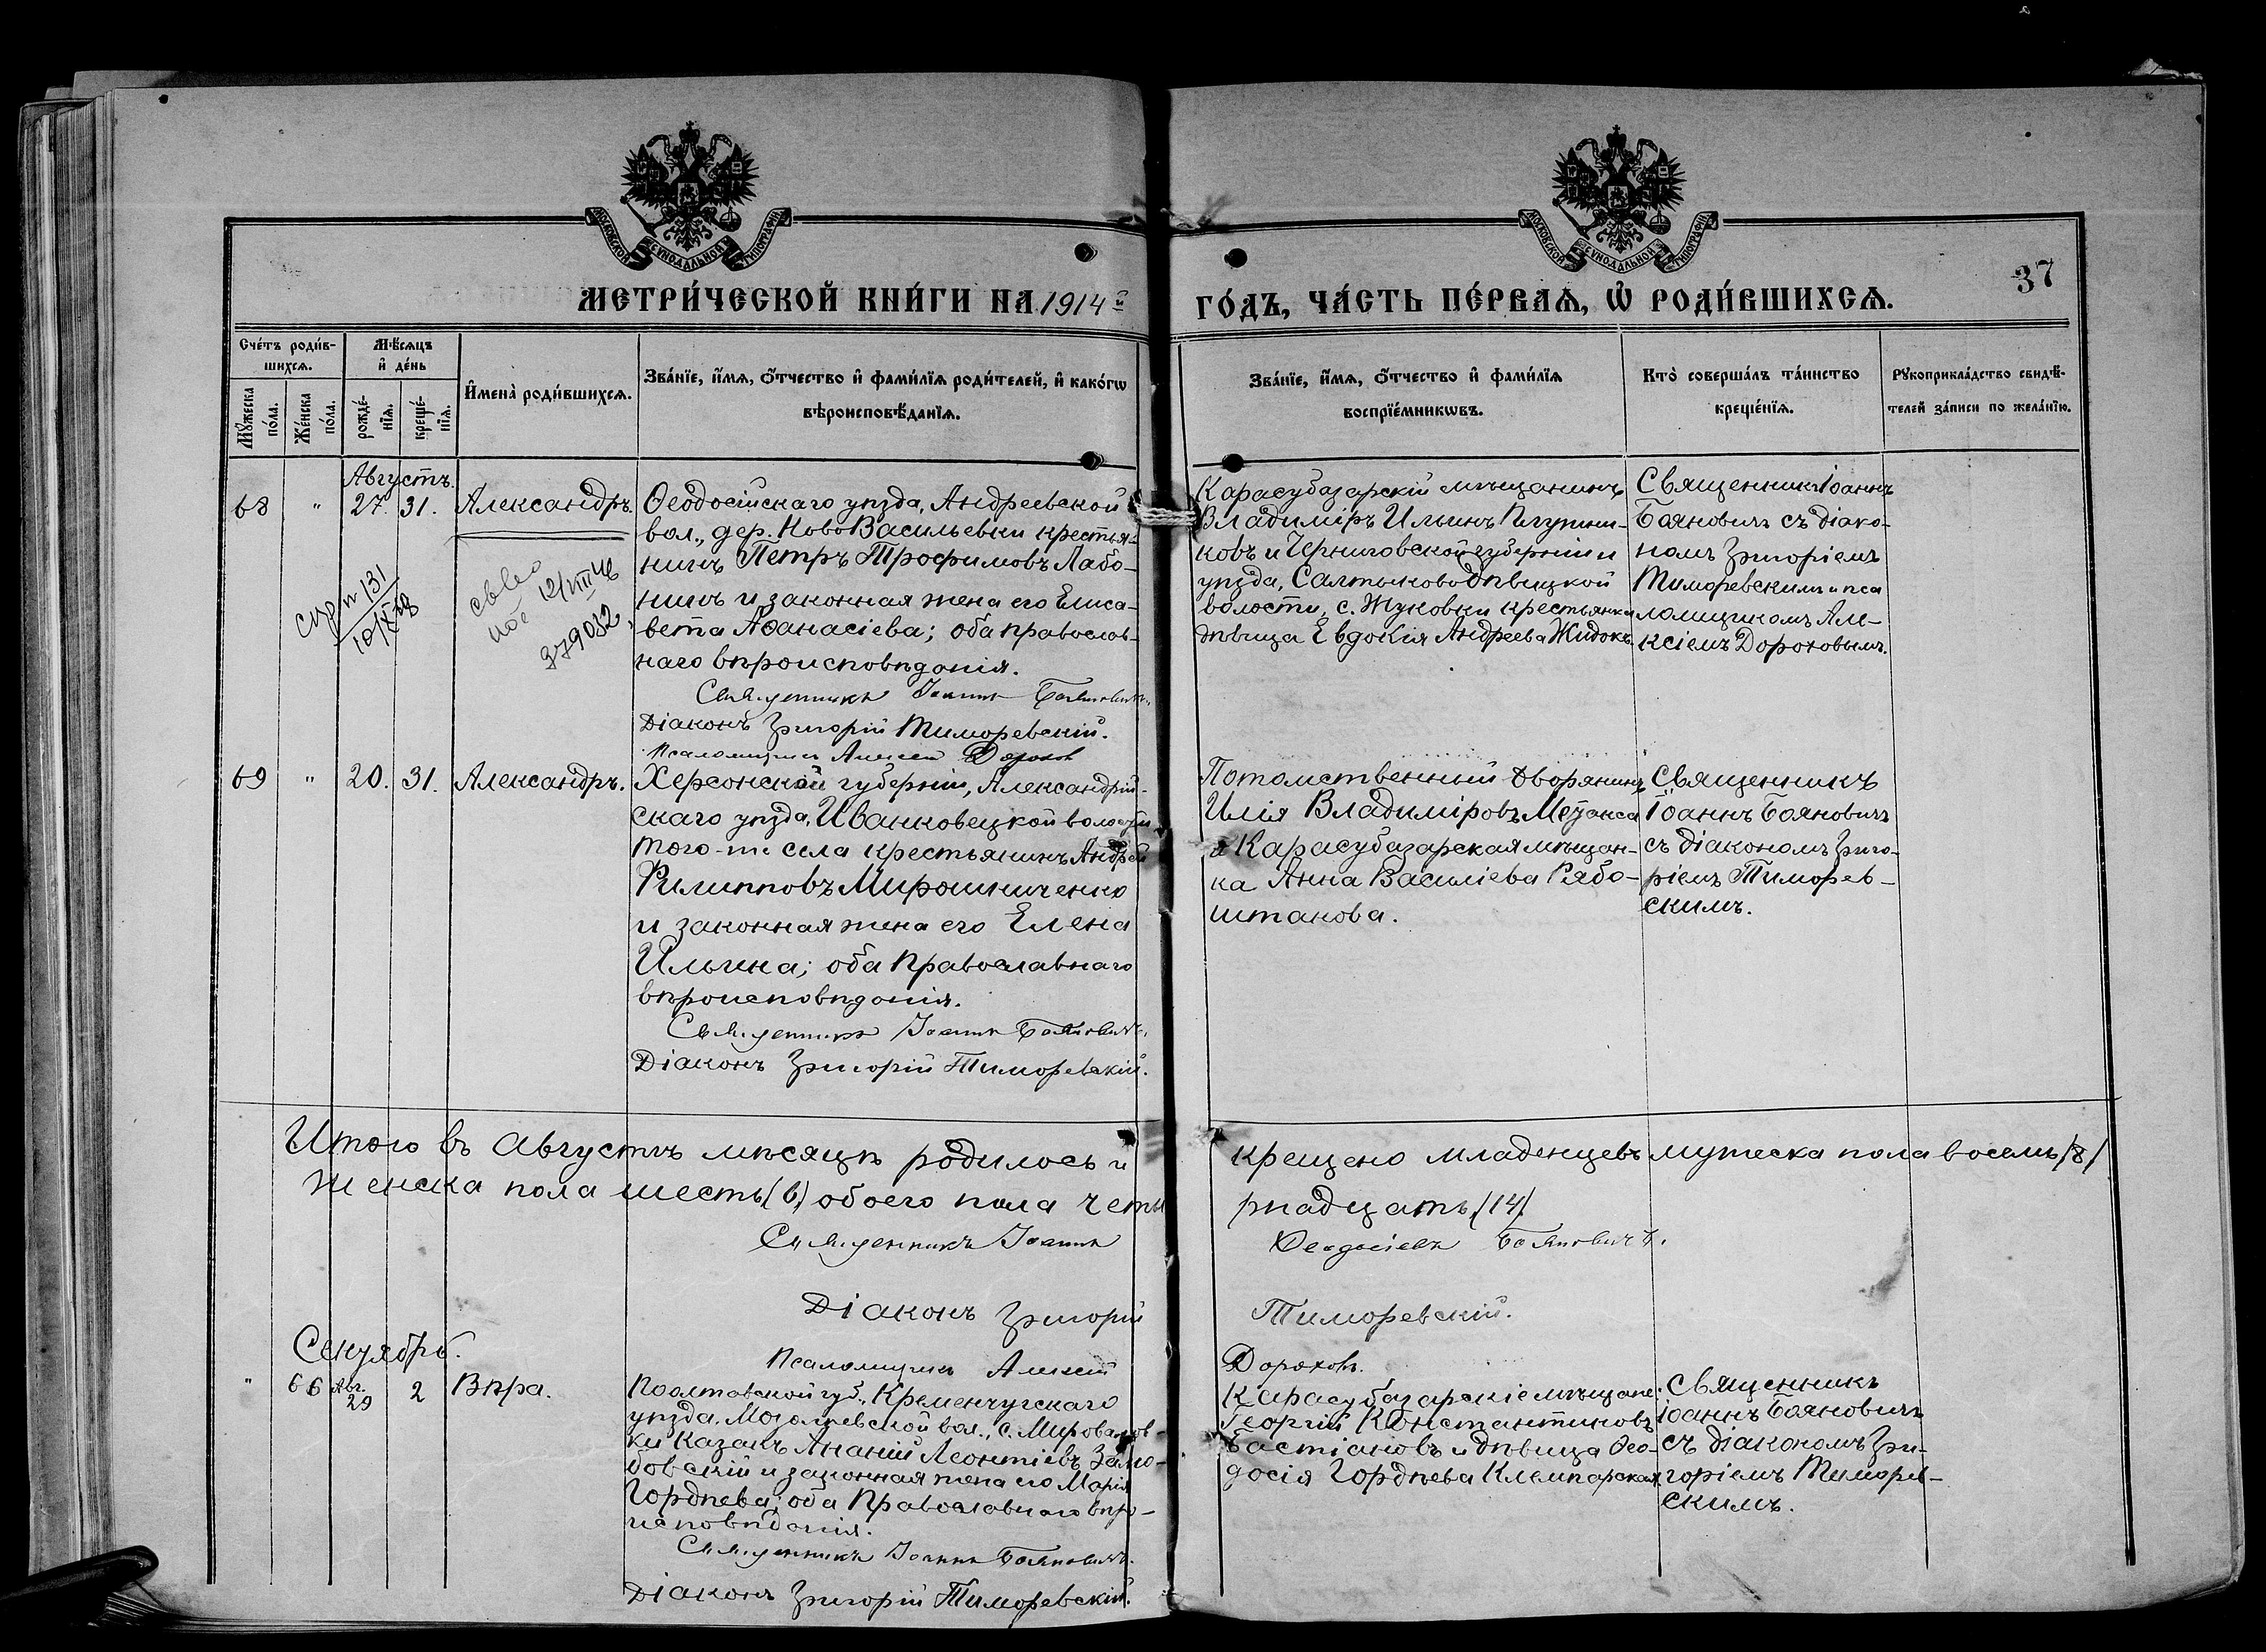 МОСКОВСКОЙ СУНОДАЛЬНОЙ ТИПОГРАФІИ
МОСКОВСКОЙ СУНОДАЛЬНОЙ ТИПОГРАФІИ
37
МЕТРИ́ЧЕСКОЙ КНИ́ГИ НА 1914й
ГО́ДЪ, ЧА́СТЬ ПЕ́РВАѦ, Ѡ҆ РОДИ́ВШИХСѦ.
Сче́тъ роди́в-
шихсѧ.
Мꙋ́жеска по́ла.
Же́нска по́ла.
Мѣ́сѧцъ
и҆ де́нь
рожде́-
нїѧ.
креще́-
нїѧ.
И҆мена̀ роди́вшихсѧ.
Зва́нїе, и҆́мѧ, ѻ҆́тчество и҆ фами́лїѧ роди́телей, и҆ како́гѡ
вѣроисповѣ́данїѧ.
Зва́нїе, и҆́мѧ, ѻ҆́тчество и҆ фами́лїѧ
воспрїе́мникѡвъ.
Кто̀ соверша́лъ та́инство
креще́нїѧ.
Рꙋкоприкла́дство свидѣ́-
телей за́писи по жела́нїю.
Августъ.
68 " 27. 31. Александръ.
Ѳеодосійскаго уѣзда, Андреевской
вол., дер. НовоВасильевки крестья-
нинъ Петръ Трофимовъ Лабо-
нинъ и законная жена его Елиса-
вета Аѳанасіева; оба православ-
наго вѣроисповѣданія.
Священникъ Іоаннъ Бояновичъ.
Діаконъ Григорій Тиморевскій.
Псаломщикъ Алексей Дорохов
131
10/IX
12/VIII 46
379032
Карасубазарскій мѣщанинъ
Владиміръ Ильинъ
ковъ и Черниговской губерніи и
уѣзда, Салтыководѣвицкой
волости, с. Жуковки крестьянка
дѣвица Евдокія Андреева Жидокъ.
Священникъ Іоаннъ
Бояновичъ съ діако-
номъ Григоріемъ
Тиморевскимъ и пса
ломщикомъ Але-
ксіемъ Дороховымъ.
69 " 20. 31. Александръ.
Херсонской губерніи, Александрій-
скаго уѣзда, Иванковецкой волости
того-же села крестьянинъ Андрей
Филипповъ Мирошниченко
и законная жена его Елена
Ильина; оба православнаго
вѣроисповѣданія.
Священникъ Іоаннъ Бояновичъ.
Діаконъ Григорій Тиморевскій.
Потомственный дворянинъ
Илія Владиміровъ
и Карасубазарская мѣщан-
ка Анна Василіева Рябо-
штанова.
Священникъ
Іоаннъ Бояновичъ
съ діакономъ Григо-
ріемъ Тиморев-
скимъ.
Итого въ Августѣ мѣсяцѣ родилось и крещено младенцевъ мужеска пола восемь /8/
женска пола шесть /6/ обоего пола четы рнадцать /14/.
Священникъ Іоаннъ Ѳеодосіевъ Бояновичъ.
Діаконъ Григорій Тиморевскій.
Псаломщикъ Алексей Дороховъ.
Сентябрь.
" 66 Авг. 29 2 Вѣра.
Полтавской губ., Кременчугскаго
уѣзда, вол., с.
ки казакъ Ананій Леонтіевъ
довскій и законная жена его Марія
Гордѣева; оба Православнаго вѣро-
исповѣданія.
Священникъ Іоаннъ Бояновичъ.
Діаконъ Григорій Тиморевскій.
Карасубазарскіе мѣщане:
Георгій Константиновъ
Бастіановъ и дѣвица Ѳео-
досія Гордѣева
Священникъ
Іоаннъ Бояновичъ
съ діакономъ Гри-
горіемъ Тиморев-
скимъ.